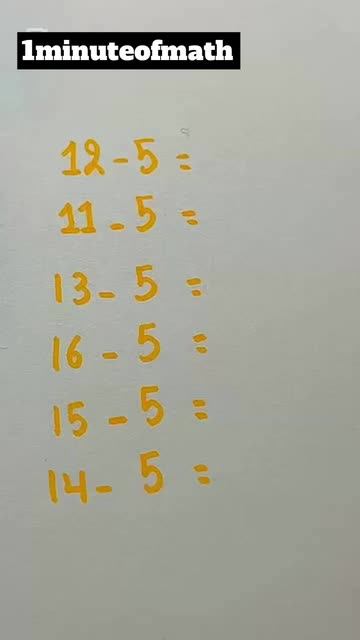 1minuteofmath
12 - 5 =
11 - 5 =
13 - 5 =
16 - 5 =
15 - 5 =
14 - 5 =